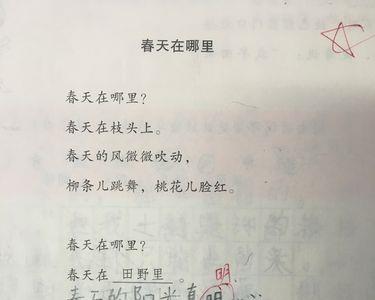 春天在哪里
春天在哪里?
春天在枝头上。
春天的风微微吹动,
柳条儿跳舞,桃花儿脸红。
春天在哪里?
春天在 田野里 。
明
春天的阳光真明